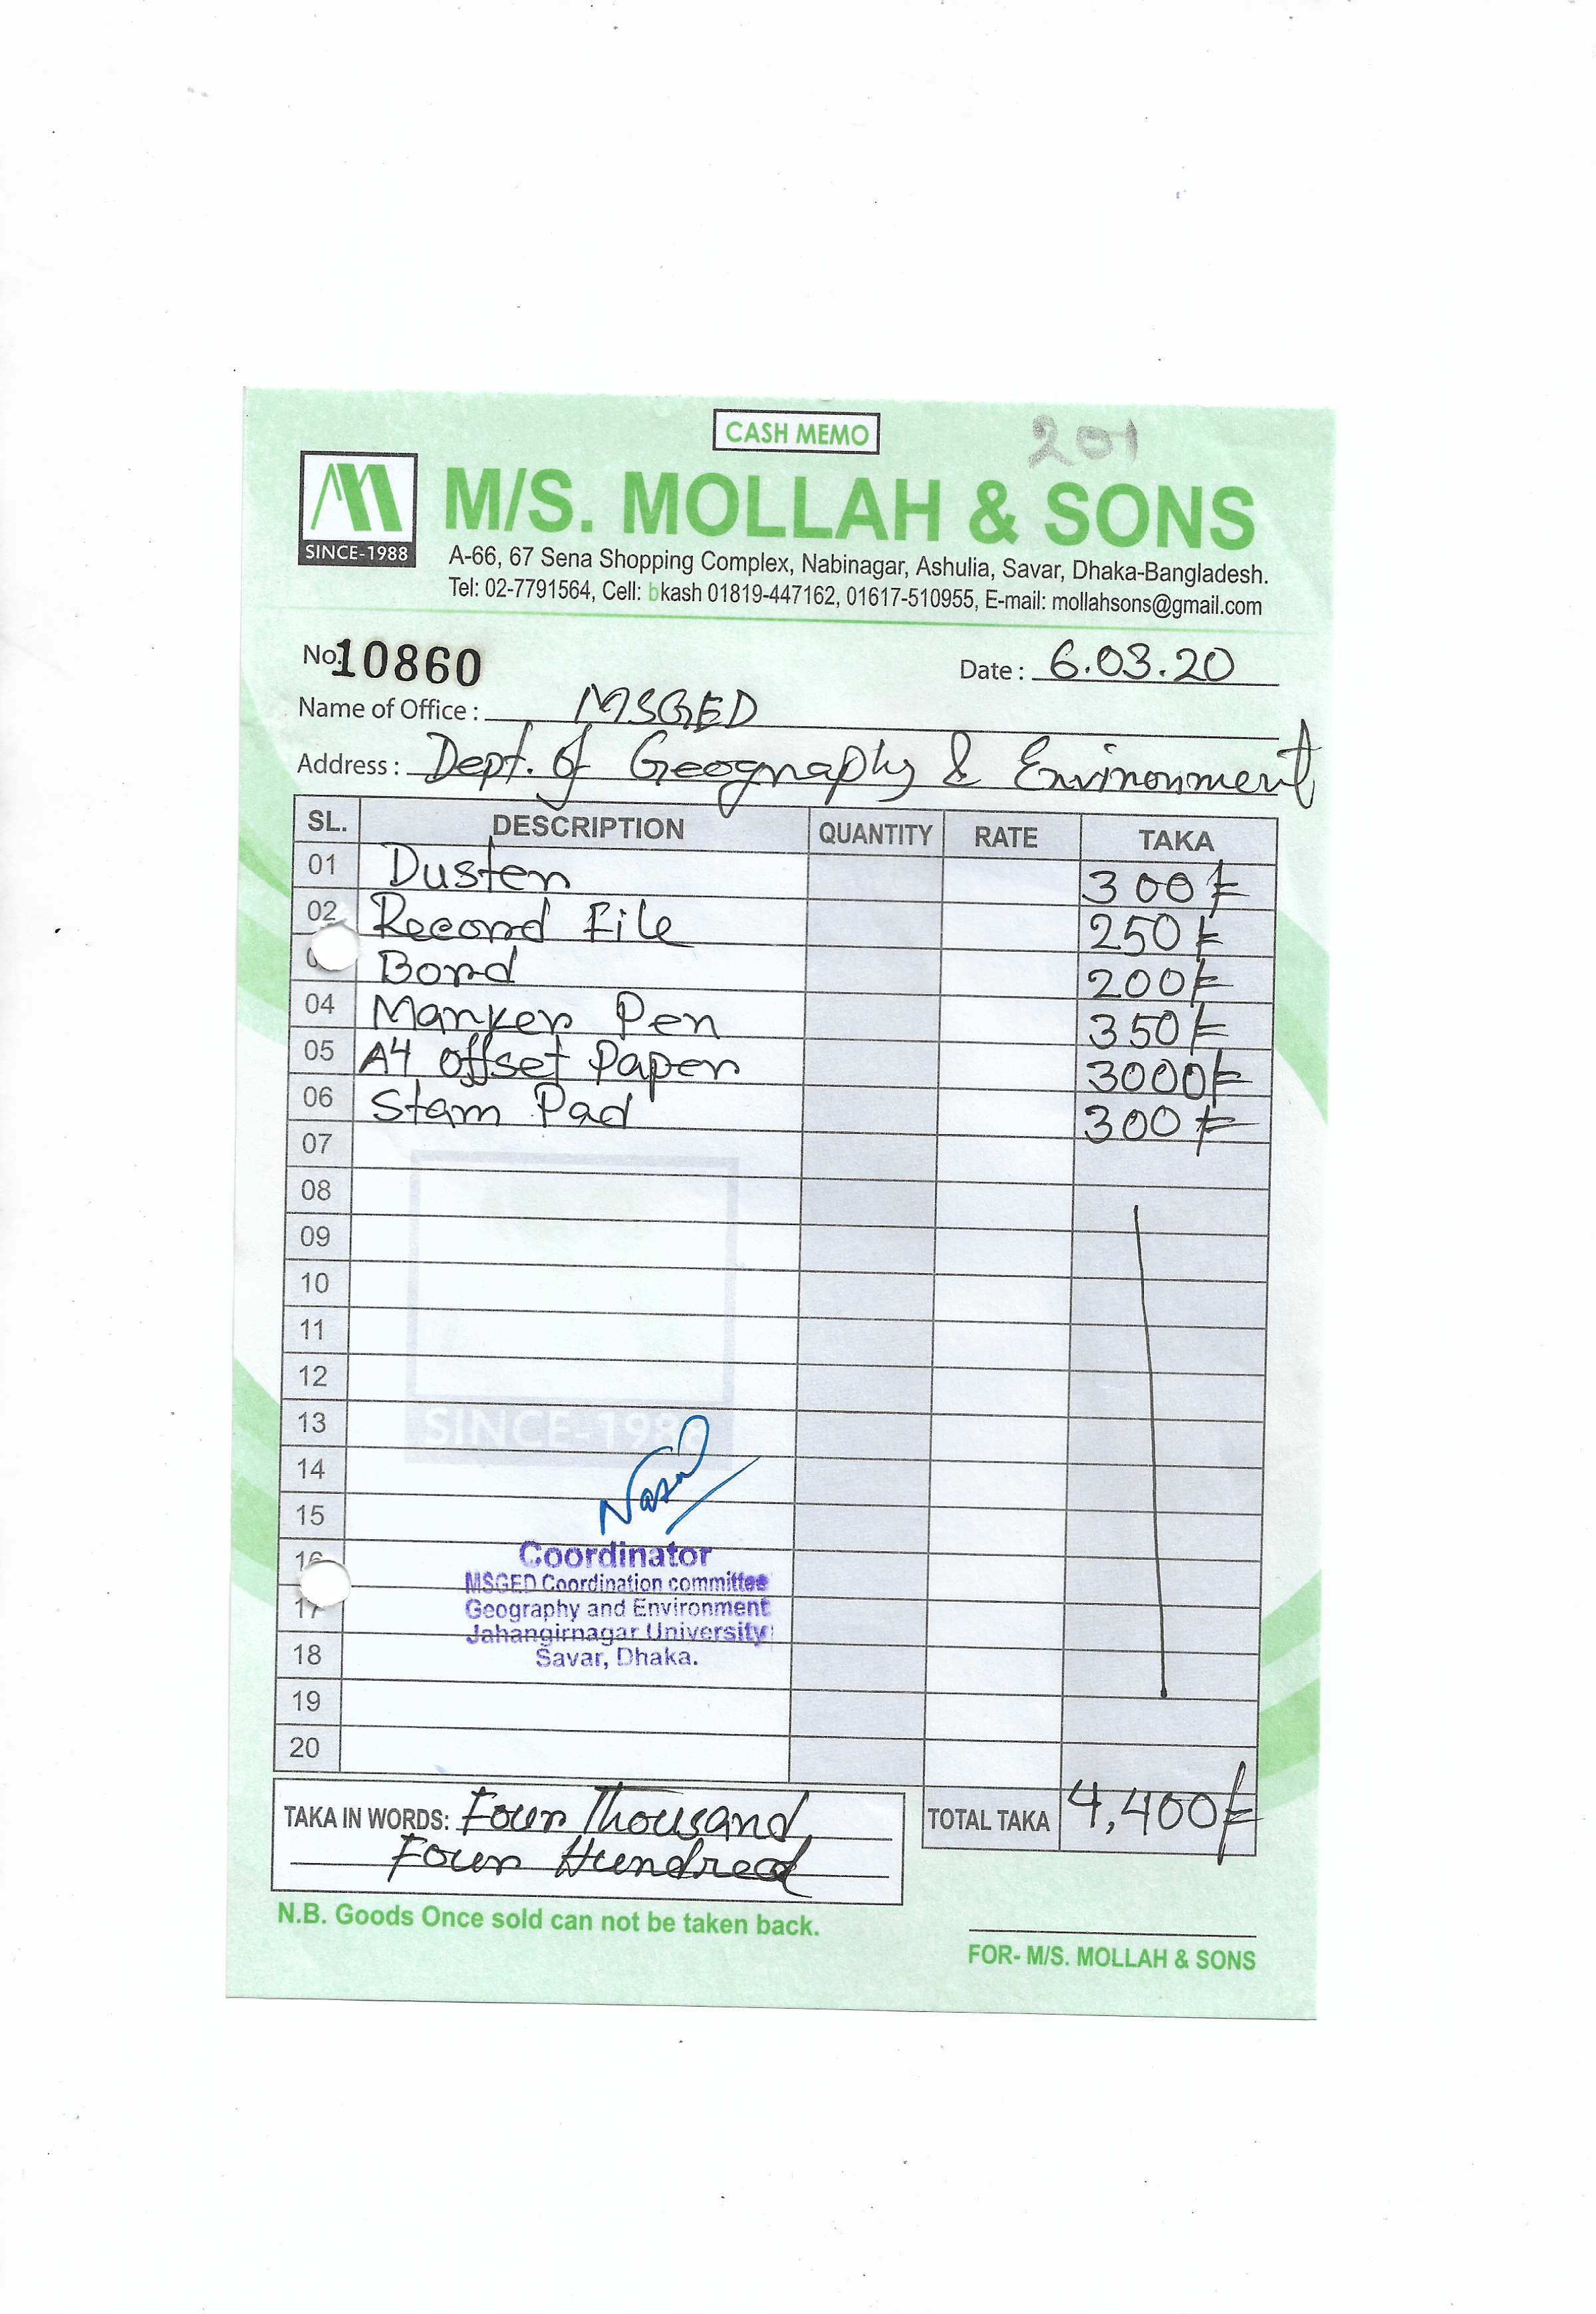 CASH MEMO
201
M/S. MOLLAH & SONS
SINCE-1988
A-66, 67 Sena Shopping Complex, Nabinagar, Ashulia, Savar, Dhaka-Bangladesh.
Tel: 02-7791564, Cell: bkash 01819-447162, 01617-510955, E-mail: mollahsons@gmail.com
No. 10860 Date : 6.03.20
Name of Office : MSGED
Address : Dept. of Geography & Environment
SL. DESCRIPTION QUANTITY RATE TAKA
01 Duster 300/=
02 Record File 250/=
Bord 200/=
04 Marker Pen 350/=
05 A4 offset Paper 3000/=
06 Stam Pad 300/=
07
08
09
10
11
12
13
SINCE-1988
14
15
16
17
18
19
20
Coordinator
MSGED Coordination committee
Geography and Environment
Jahangirnagar University
Savar, Dhaka.
TAKA IN WORDS: Four Thousand
Four Hundred
TOTAL TAKA 4,400/=
N.B. Goods Once sold can not be taken back.
FOR- M/S. MOLLAH & SONS